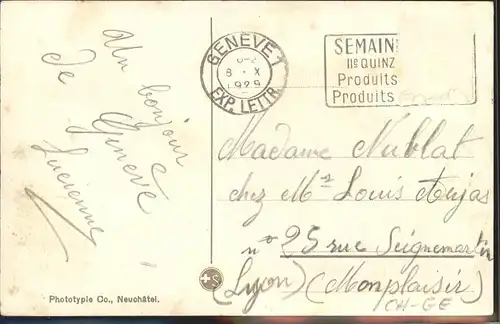 Un bonjour
de Genève
Lucienne
GENEVE 1
8 · X
1929
EXP. LETTR.
SEMAIN
IIº QUINZ
Produits
Produits
Madame Nublat
chez Mr Louis
nº 25 rue Seignemartin
(Lyon) (Monplaisir)
CH-GE
Phototypie Co., Neuchâtel.